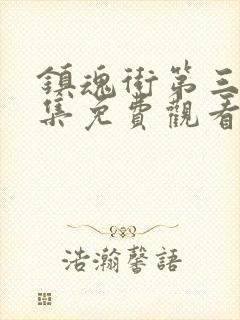 鎮魂街第三
集免費觀看
浩瀚馨語